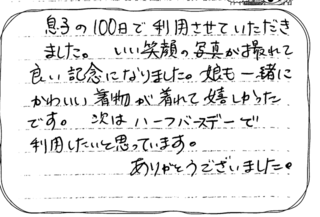 息子の100日で利用させていただき
ました。いい笑顔の写真が撮れて
良い記念になりました。娘も一緒に
かわいい着物が着れて嬉しかった
です。次はハーフバースデーで
利用したいと思っています。
ありがとうございました。